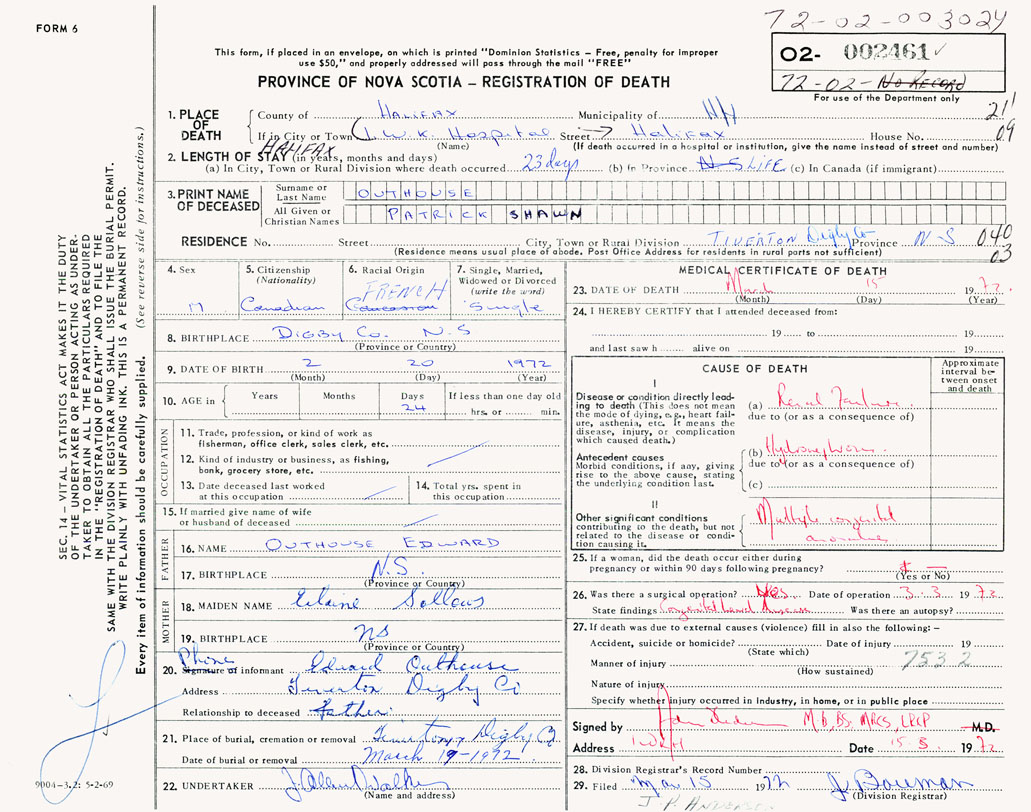 72-02-003024
FORM 6
02- 002461
This form, if placed in an envelope, on which is printed "Dominion Statistics – Free, penalty for improper
use $50," and properly addressed will pass through the mail "FREE"
72-02-No RECORD
PROVINCE OF NOVA SCOTIA – REGISTRATION OF DEATH
For use of the Department only
1. PLACE OF DEATH
County of HALIFAX Municipality of
21
If in City or Town I.W.K. Hospital Street Halifax House No. 09
(Name) (If death occurred in a hospital or institution, give the name instead of street and number)
HALIFAX
2. LENGTH OF STAY (in years, months and days)
(a) In City, Town or Rural Division where death occurred 23 days (b) In Province N S LIFE (c) In Canada (if immigrant)
3. PRINT NAME OF DECEASED
Surname or Last Name OUTHOUSE
All Given or Christian Names PATRICK SHAWN
RESIDENCE No. Street City, Town or Rural Division TIVERTON Digby Co Province N S 040
03
(Residence means usual place of abode. Post Office Address for residents in rural parts not sufficient)
4. Sex
M
5. Citizenship
(Nationality)
Canadian
6. Racial Origin
FRENCH
Caucasian
7. Single, Married,
Widowed or Divorced
(write the word)
Single
8. BIRTHPLACE DIGBY Co. N.S
(Province or Country)
9. DATE OF BIRTH 2 20 1972
(Month) (Day) (Year)
10. AGE in
Years Months Days If less than one day old
24 hrs. or min.
OCCUPATION
11. Trade, profession, or kind of work as
fisherman, office clerk, sales clerk, etc.
12. Kind of industry or business, as fishing,
bank, grocery store, etc.
13. Date deceased last worked
at this occupation
14. Total yrs. spent in
this occupation
15. If married give name of wife
or husband of deceased
FATHER
16. NAME OUTHOUSE EDWARD
17. BIRTHPLACE N.S.
(Province or Country)
MOTHER
18. MAIDEN NAME Elaine Sollows
19. BIRTHPLACE NS
(Province or Country)
Phone
20. Signature of informant Edward Outhouse
Address Tiverton Digby Co
Relationship to deceased Father
21. Place of burial, cremation or removal Tiverton Digby Co
Date of burial or removal March 19-1972
22. UNDERTAKER J. Allan Walker
(Name and address)
MEDICAL CERTIFICATE OF DEATH
23. DATE OF DEATH March 15 1972.
(Month) (Day) (Year)
24. I HEREBY CERTIFY that I attended deceased from:
19 to 19
and last saw h alive on 19
CAUSE OF DEATH
Approximate
interval be-
tween onset
and death
I
Disease or condition directly lead-
ing to death (This does not mean
the mode of dying, e.g., heart fail-
ure, asthenia, etc. It means the
disease, injury, or complication
which caused death.)
(a) Renal Failure
due to (or as a consequence of)
Antecedent causes
Morbid conditions, if any, giving
rise to the above cause, stating
the underlying condition last.
(b)
due to (or as a consequence of)
(c)
II
Other significant conditions
contributing to the death, but not
related to the disease or condi-
tion causing it.
Multiple congenital
anomalies
25. If a woman, did the death occur either during
pregnancy or within 90 days following pregnancy?
(Yes or No)
26. Was there a surgical operation? Yes Date of operation 3. 3 1972
State findings Congenital heart disease Was there an autopsy?
27. If death was due to external causes (violence) fill in also the following: –
Accident, suicide or homicide? Date of injury 19
(State which)
Manner of injury 753 2
(How sustained)
Nature of injury
Specify whether injury occurred in Industry, in home, or in public place
Signed by M.B, BS. MRCS, LRCP M.D.
Address IWKH Date 15 3 1972
28. Division Registrar's Record Number
29. Filed Mar 15 1972 J. Bouman
(Division Registrar)
SEC. 14 – VITAL STATISTICS ACT MAKES IT THE DUTY
OF THE UNDERTAKER OR PERSON ACTING AS UNDER-
TAKER TO OBTAIN ALL THE PARTICULARS REQUIRED
IN THE "REGISTRATION OF DEATH" AND TO FILE THE
SAME WITH THE DIVISION REGISTRAR WHO SHALL ISSUE THE BURIAL PERMIT.
WRITE PLAINLY WITH UNFADING INK. THIS IS A PERMANENT RECORD.
Every item of information should be carefully supplied. (See reverse side for instructions.)
9004-3.2: 5-2-69